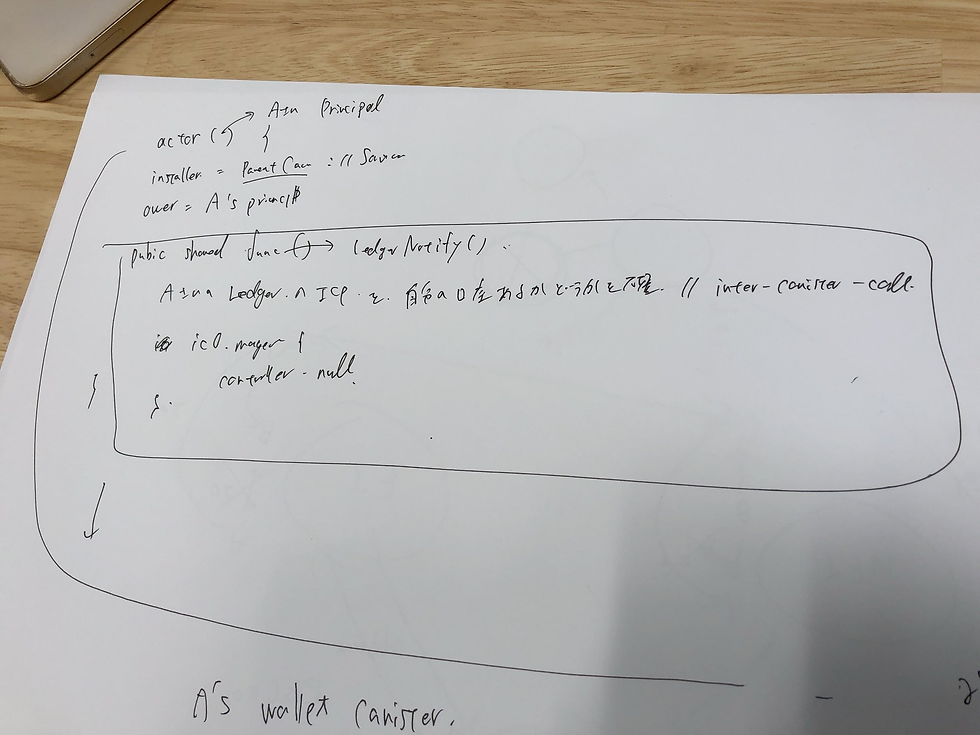 Aさん Principal
actor ( ) {
installer = Parent Can : // Savior
ower = A's princip
pubic shared func ( ) → ledgerNotify ( ) .
Aさんの Ledger. の ICP. を. 自分の口座あるかどうかを確認. // inter-canister-call.
ic0. mager {
controller - null.
} .
}
A's wallet canister.